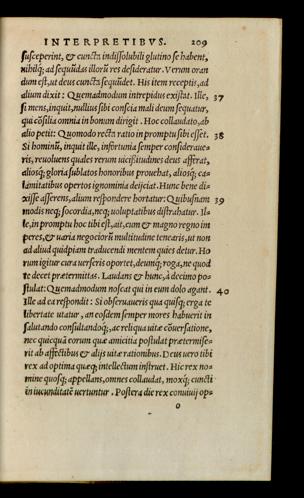 INTERPRETIBVS. 209
susceperint, & cuncta indissolubili glutino se habent,
nihilq; ad sequēdas illorū res desideratur. Verum oran
dum est, ut deus cuncta secundet. His item receptis, ad
alium dixit: Quemadmodum intrepidus existat. Ille, 37
si mens, inquit, nullius sibi conscia mali deum sequatur,
qui cōsilia omnia in bonum dirigit. Hoc collaudato, ab
alio petit: Quomodo recta ratio in promptu sibi esset. 38
Si hominū, inquit ille, infortunia semper considerave-
ris, revoluens quales rerum vicissitudines deus afferat,
aliosq; gloria sublatos honoribus prouehat, aliosq; ca-
lamitatibus opertos ignominia deijciat. Hunc bene di-
xisse asserens, alium respondere hortatur: Quibusnam 39
modis neq; socordia, neq; uoluptatibus distrahatur. Il-
le, in promptu hoc tibi est, ait, cum & magno regno im
peres, & uaria negociorū multitudine tenearis, ut non
ad aliud quidpiam traducendi mentem quies detur. Ho
rum igitur cura uerseris oportet, deumq; roga, ne quod
te decet prætermittas. Laudans & hunc, à decimo po-
stulat: Quemadmodum noscat qui in eum dolo agant. 40
Ille ad ea respondit: Si obseruaueris qua quisq; erga te
libertate utatur, an eosdem semper mores habuerit in
salutando consultandoq;, ac reliqua uitæ cōuersatione,
nec quicquā eorum quæ amicitia postulat prætermise-
rit ab affectibus & alijs uitæ rationibus. Deus uero tibi
rex ad optima quæq; intellectum instruet. Hic rex no-
mine quosq; appellans, omnes collaudat, moxq; cuncti
in iucunditatē uertuntur. Postera die rex conuiuij op-
o